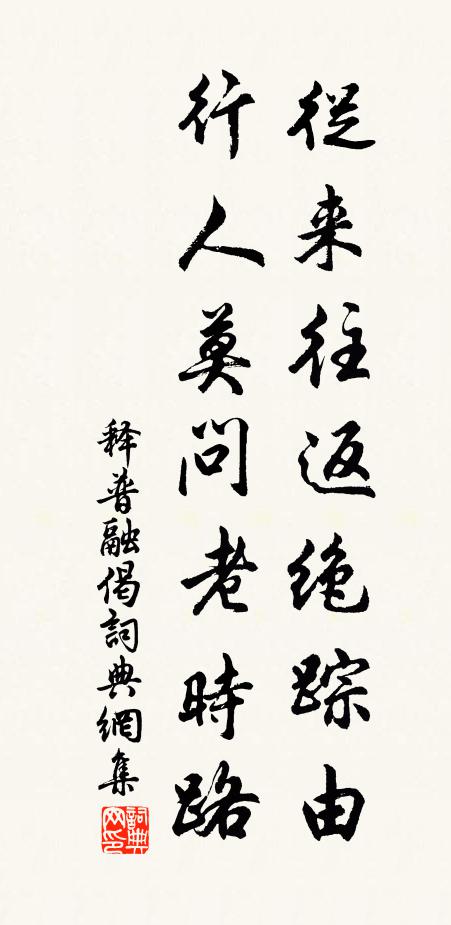 從来往返绝踪由
行人莫问老時路
释普融偈詞典網集
詞典网印